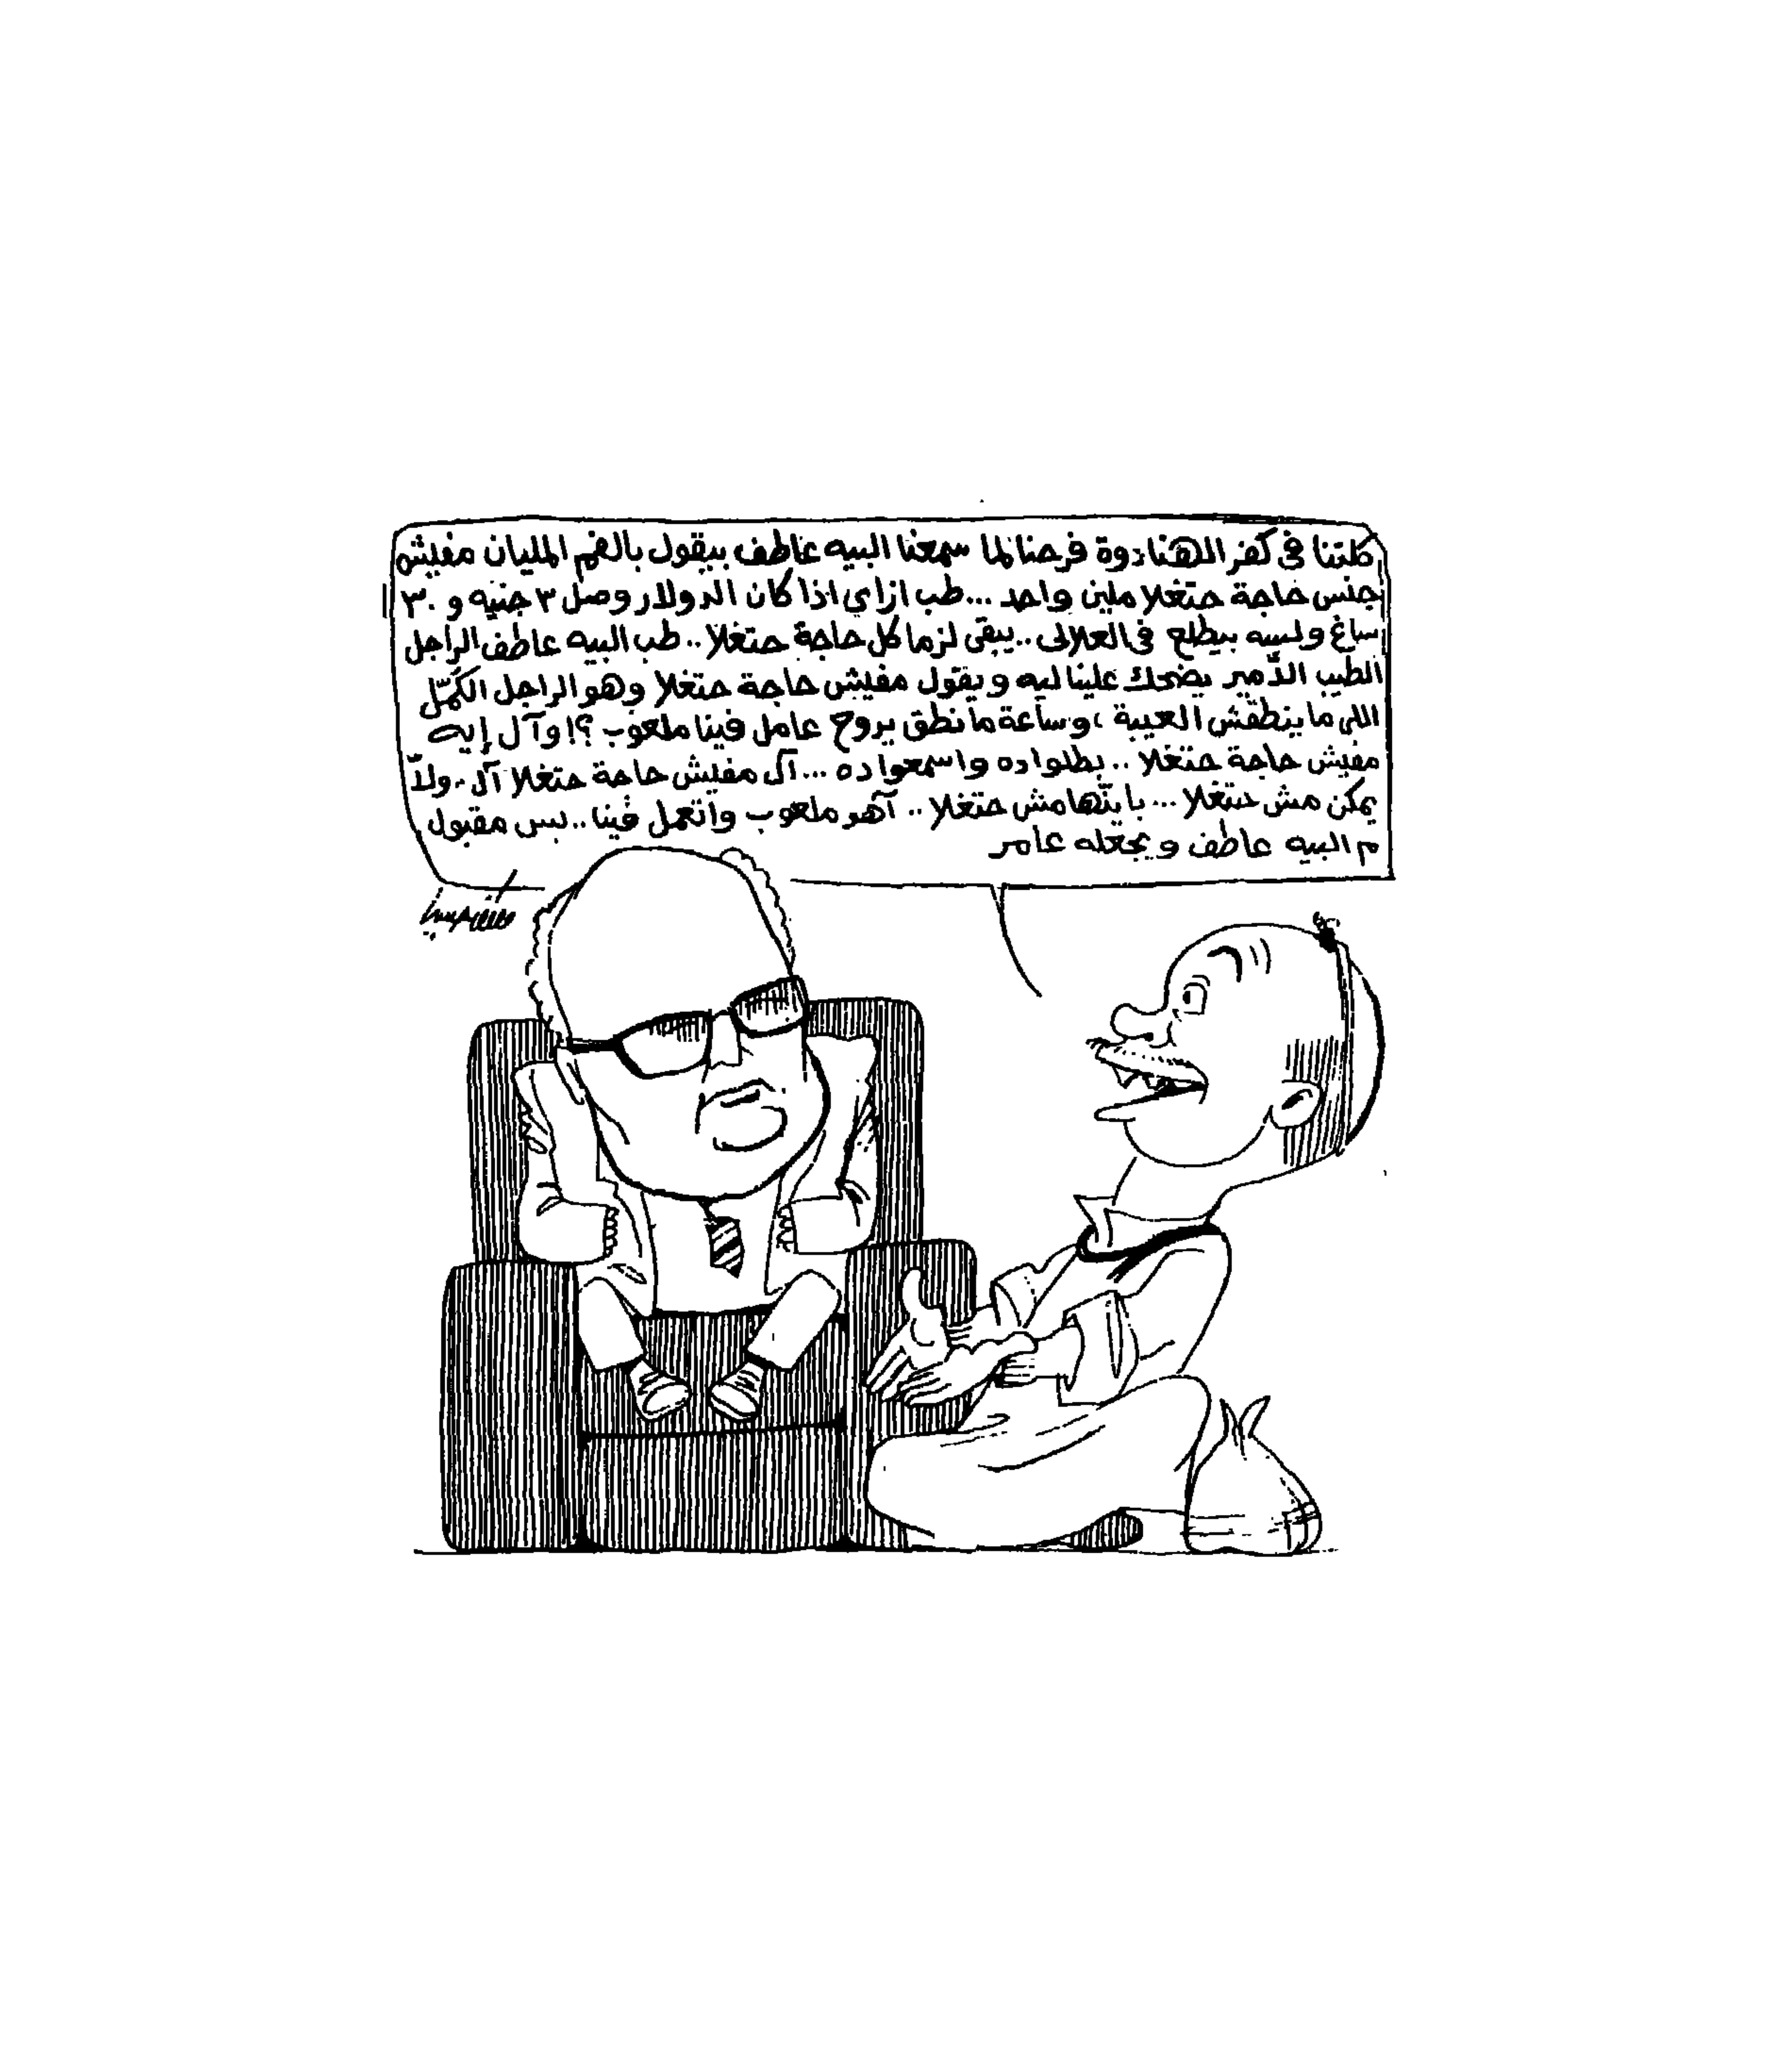 كلتنا فى كفر الهنادوة فرحنا لما سمعنا البيه عاطف بيقول بالفم المليان مفيش
جنس حاجة حتغلا مليم واحد ... طب ازاي اذا كان الدولار وصل ٣ جنيه و ٣٠
ساغ ولسه بيطلع فى العلالى .. يبقى لزما كل حاجة حتغلا .. طب البيه عاطف الراجل
الطيب الأمير يضحك علينا ليه ويقول مفيش حاجة حتغلا وهو الراجل الكُمَّل
اللى ما ينطقش العيبة ، وساعة ما نطق يروح عامل فينا ملعوب ؟! وآل إيه
مفيش حاجة حتغلا .. بطلوا ده واسمعوا ده ... آل مفيش حاجة حتغلا آل .. ولاّ
يمكن مش حتغلا ... باينّها مش حتغلا .. آهو ملعوب واتعمل فينا .. بس مقبول
م البيه عاطف ويجعله عامر